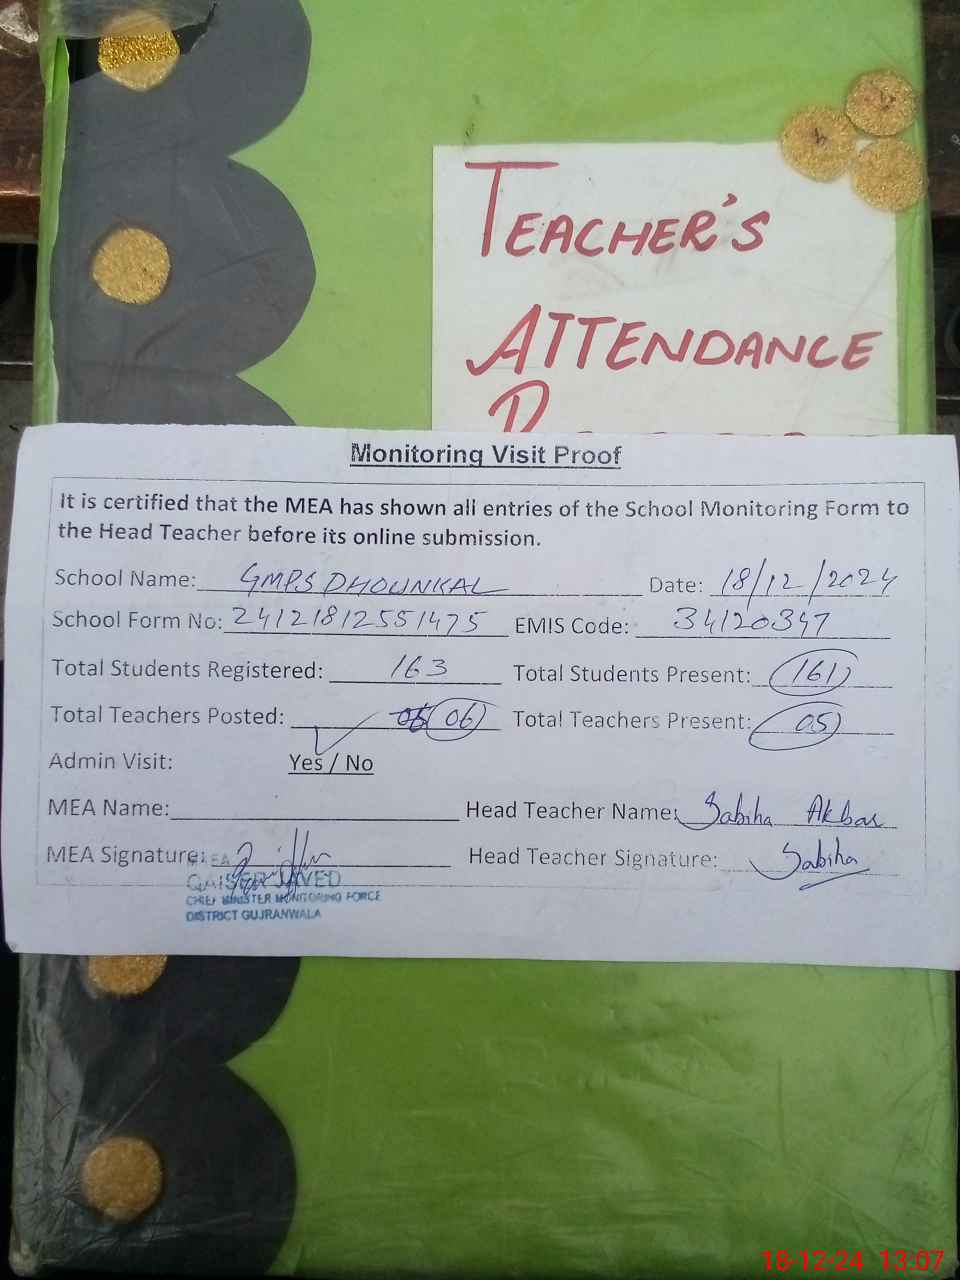 TEACHER'S
ATTENDANCE
Monitoring Visit Proof
It is certified that the MEA has shown all entries of the School Monitoring Form to
the Head Teacher before its online submission.
School Name: GMPS DHOUNKAL Date: 18/12/2024
School Form No: 24121812551475 EMIS Code: 34120347
Total Students Registered: 163 Total Students Present: 161
Total Teachers Posted: 06 Total Teachers Present: 05
Admin Visit: Yes / No
MEA Name: Head Teacher Name: Sabiha Akbar
MEA Signature: Head Teacher Signature: Sabiha
MEA
QAISER JAVED
CHIEF MINISTER MONITORING FORCE
DISTRICT GUJRANWALA
18-12-24 13:07